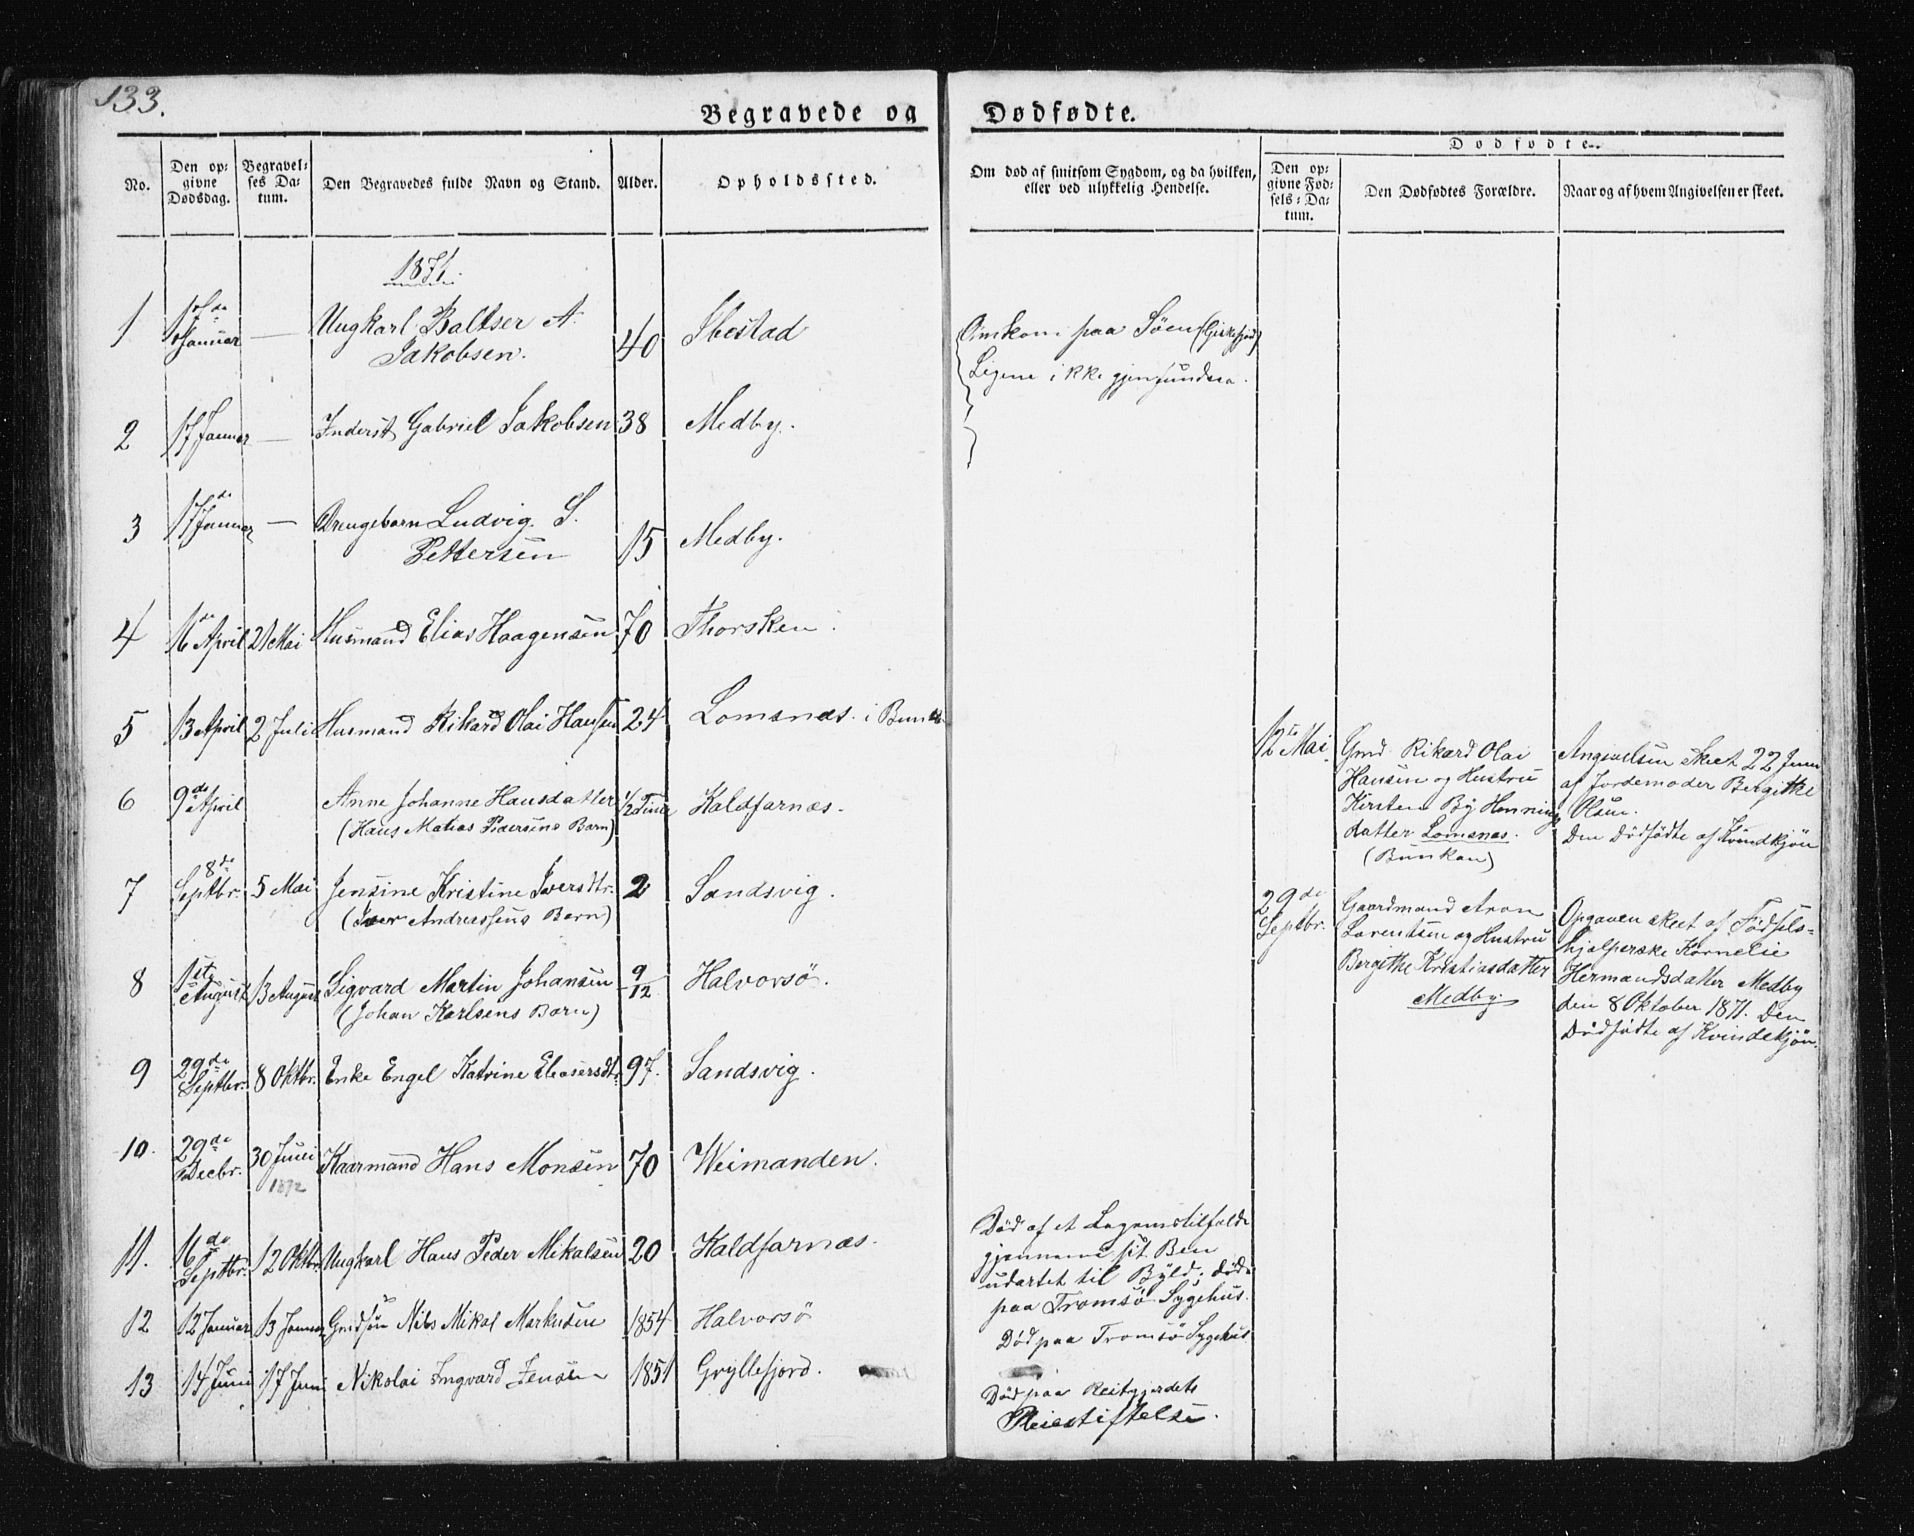 133.
Begravede og Dødfødte.
No.
Den opgivne Dødsdag.
Begravelses Datum.
Den Begravedes fulde Navn og Stand.
Alder.
Opholdssted.
Om død af smitsom Sygdom, og da hvilken, eller ved ulykkelig Hendelse.
Dødfødte.
Den opgivne Fødsels-Datum.
Den Dødfødtes Forældre.
Naar og af hvem Angivelsen er skeet.
1871.
1 17de Januar — Ungkarl Baltser A. Jakobsen. 40 Ibestad
Omkom paa Søen
Ligene ikke gjenfundne.
2 17 Januar — Inderst Gabriel Jakobsen 38 Medby.
3 17de Januar — Drengebarn Ludvig S. Pettersen 15 Medby.
4 16de April 21 Mai Husmand Elias Haagensen 70 Thorsken.
5 13 April 2 Juli Husmand Rikard Olai Hansen 24 Lomsnæs i
6 9de April Anne Johanne Hansdatter 1/2 Time Kaldfarnæs.
(Hans Matias Pedersens Barn)
7 8de Septbr. 5 Mai Jensine Kristine Iversdtr. 2 Sandsvig.
(Iver Andreassens Barn)
8 1ste August 13 August Sigvard Martin Johansen 9/12 Halvorsö.
(Johan Karlsens Barn)
9 29de Septbr. 8 Oktbr. Enke Engel Katrine Eleasersdtr. 97. Sandsvig.
10. 29de Decbr. 30 Juni 1872 Kaarmand Hans Monsen 70 Weimanden.
11. 16de Septbr. 12 Oktbr. Ungkarl Hans Peder Mikalsen 20 Kaldfarnæs.
Död af et Legemstilfælde
gjennem sit Ben
udartet til Byld; døde
paa Tromsö Sygehus.
12 12 Januar 13 Januar Nils Mikal Markusen 1854 Halvorsö
Död paa Tromsö Sygehus
13 14 Juni 17 Juni Nikolai Ingvard Jensen 1851 Gryllefjord.
Död paa Reitgjerdets
Pleiestiftelse.
12te Mai.
Gmd Rikard Olai
Hansen og Hustru
Kirsten By Hennings
datter Lomsnæs.
(Bunkan)
Angivelsen skeet 22 Juni
af Jordemoder Bergitte
Olsen.
Den Dödfödte af Kvindekjön
29de Septbr.
Gaardmand Aron
Lorentsen og Hustru
Bergithe Kristiasdatter
Medby
Opgaven skeet af Födsels-
hjælperske Kornelie
Hermandsdatter Medby
den 8 Oktober 1871. Den
Dödfödte af Kvindekjön.